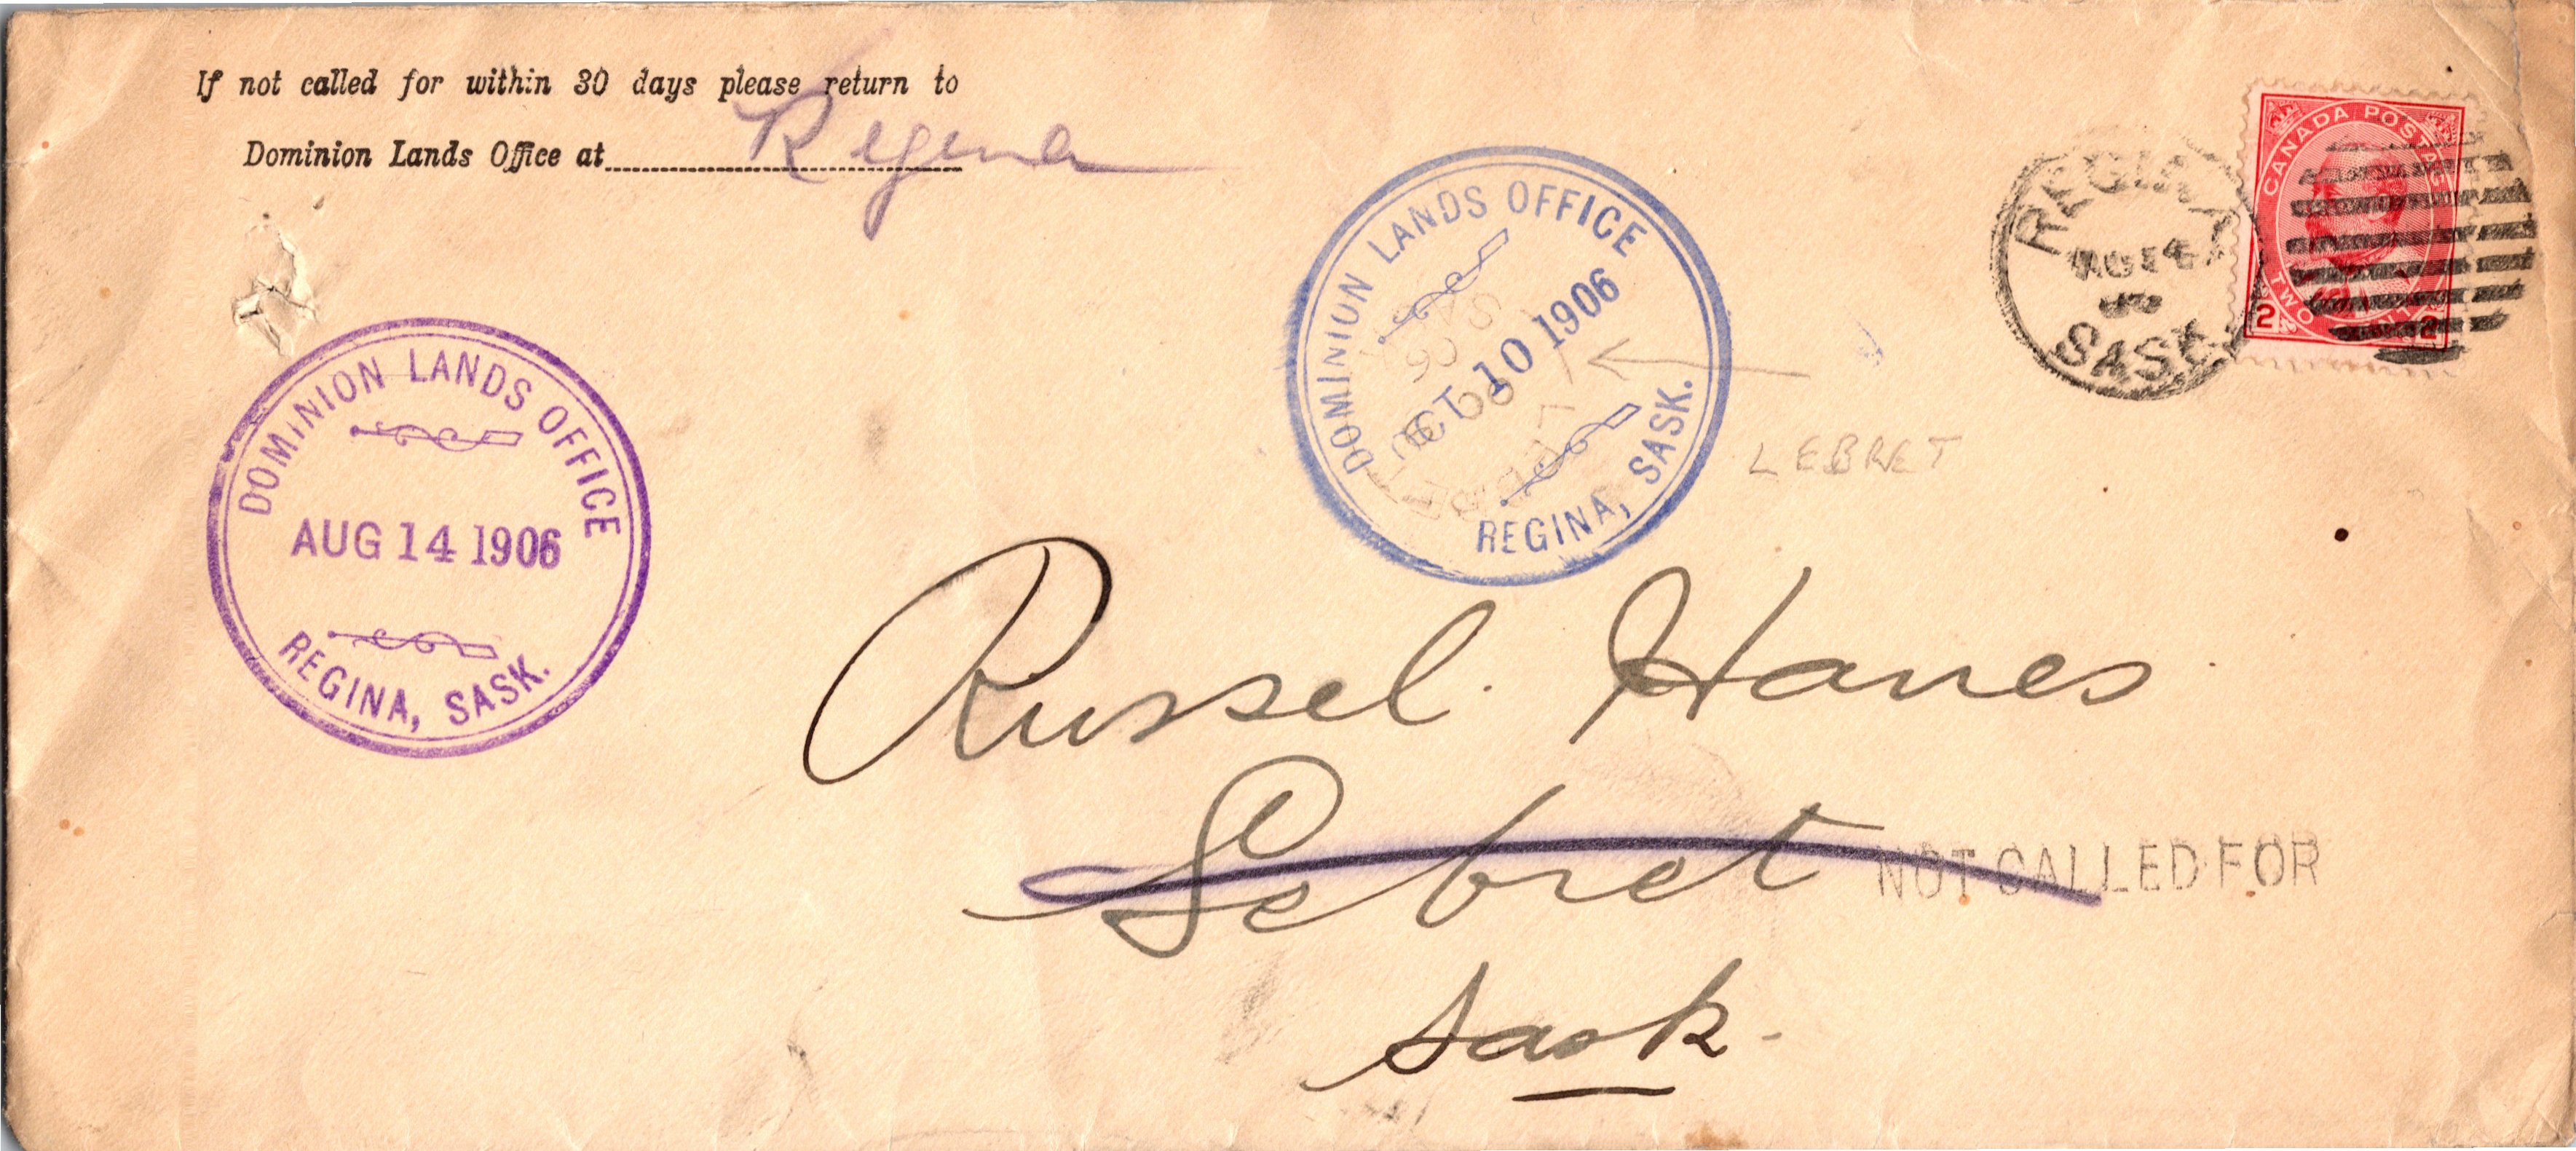 If not called for within 30 days please return to
Dominion Lands Office at Regina
DOMINION LANDS OFFICE
AUG 14 1906
REGINA, SASK.
DOMINION LANDS OFFICE
OCT 10 1906
REGINA, SASK.
REGINA
AU 14
SASK.
CANADA POSTAGE
TWO CENTS
2 2
LEBRET
Russel Hanes
Lebret
NOT CALLED FOR
Sask.